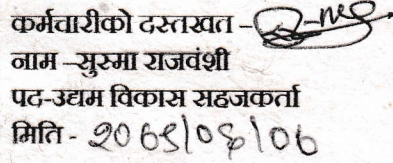 कर्मचारीको दस्तखत -
नाम –सुस्मा राजवंशी
पद-उद्यम विकास सहजकर्ता
मिति -